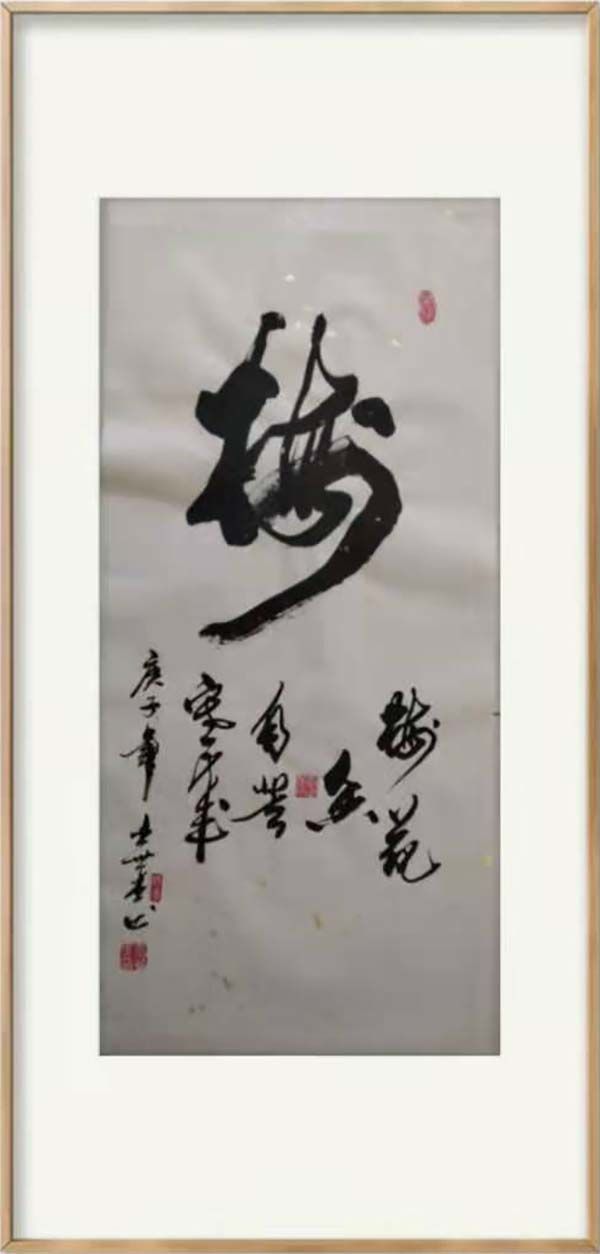 梅
梅花
香
自苦
寒来
庚子年